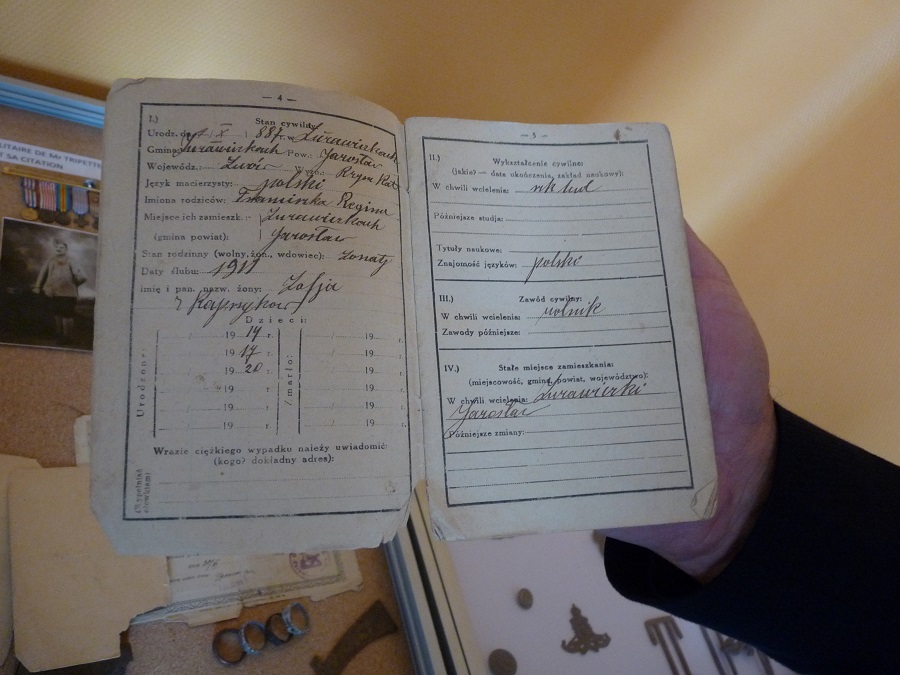 LITAIRE DE Mr TRIPETT
E SA CITATION
— 4 —
I.) Stan cywilny
Urodz. dn. X 887 r. w Żurawiczkach
Gmina Żurawiczkach Pow.: Jarosław
Wojewódz.: Lwów Wyzn.: Rzym Kat
Język macierzysty: polski
Imiona rodziców: Franciszka Regina
Miejsce ich zamieszk.: Żurawiczkach
(gmina powiat): Jarosław
Stan rodzinny (wolny, żon., wdowiec): żonaty
Daty ślubu: 1911
imię i pan. nazw. żony: Zofja
z
Dzieci:
Urodzone: Zmarło:
19 14 r. 19 r.
19 17 r. 19 r.
19 20 r. 19 r.
19 r. 19 r.
19 r. 19 r.
19 r. 19 r.
Wrazie ciężkiego wypadku należy uwiadomić
(kogo? dokładny adres):
(Wypełniać ołówkiem)
— 5 —
II.) Wykształcenie cywilne:
(jakie? — data ukończenia, zakład naukowy):
W chwili wcielenia: szk lud
Późniejsze studja:
Tytuły naukowe:
Znajomość języków: polski
III.) Zawód cywilny:
W chwili wcielenia: rolnik
Zawody późniejsze:
IV.) Stałe miejsce zamieszkania:
(miejscowość, gmina, powiat, województwo):
W chwili wcielenia: Żurawiczki
Jarosław
Późniejsze zmiany: